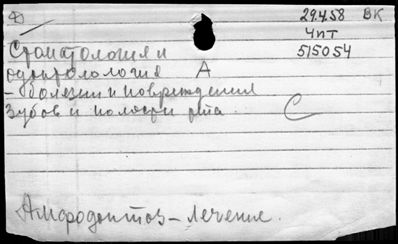 Ф
29.4.58 ВК
4пт
515054
Стоматология и
одонтология А
- болезни и повреждения
зубов и полости рта. С
Амфодонтоз - лечение.